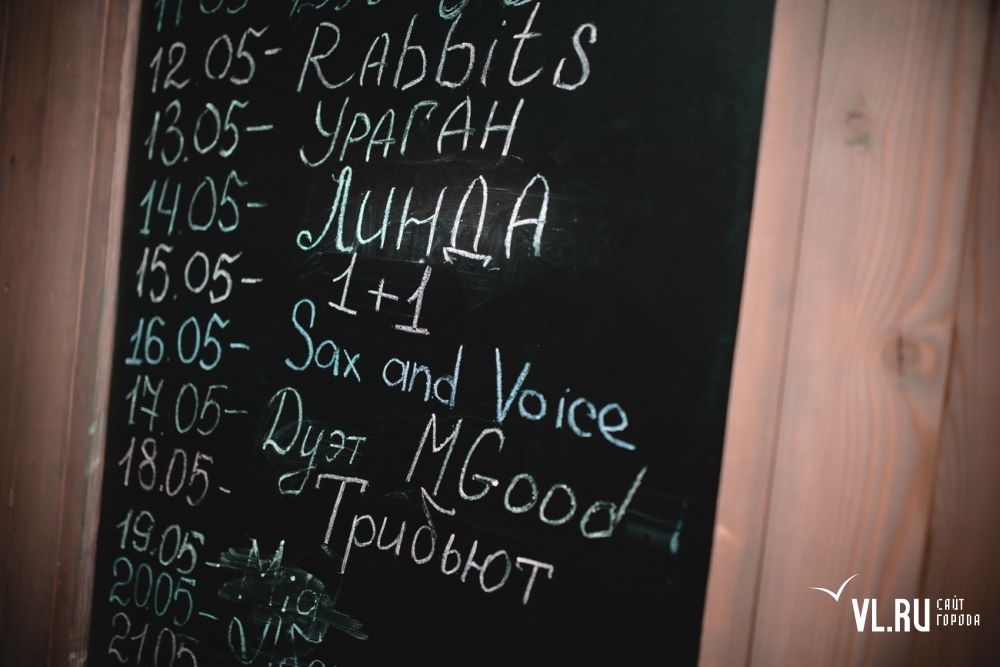 12.05- Rabbits
13.05- УРАГАН
14.05- ЛИНДА
15.05- 1+1
16.05- Sax and Voice
17.05- Дуэт MGood
18.05- Трибьют
19.05-
20.05-
21.05
VL.RU САЙТ
ГОРОДА